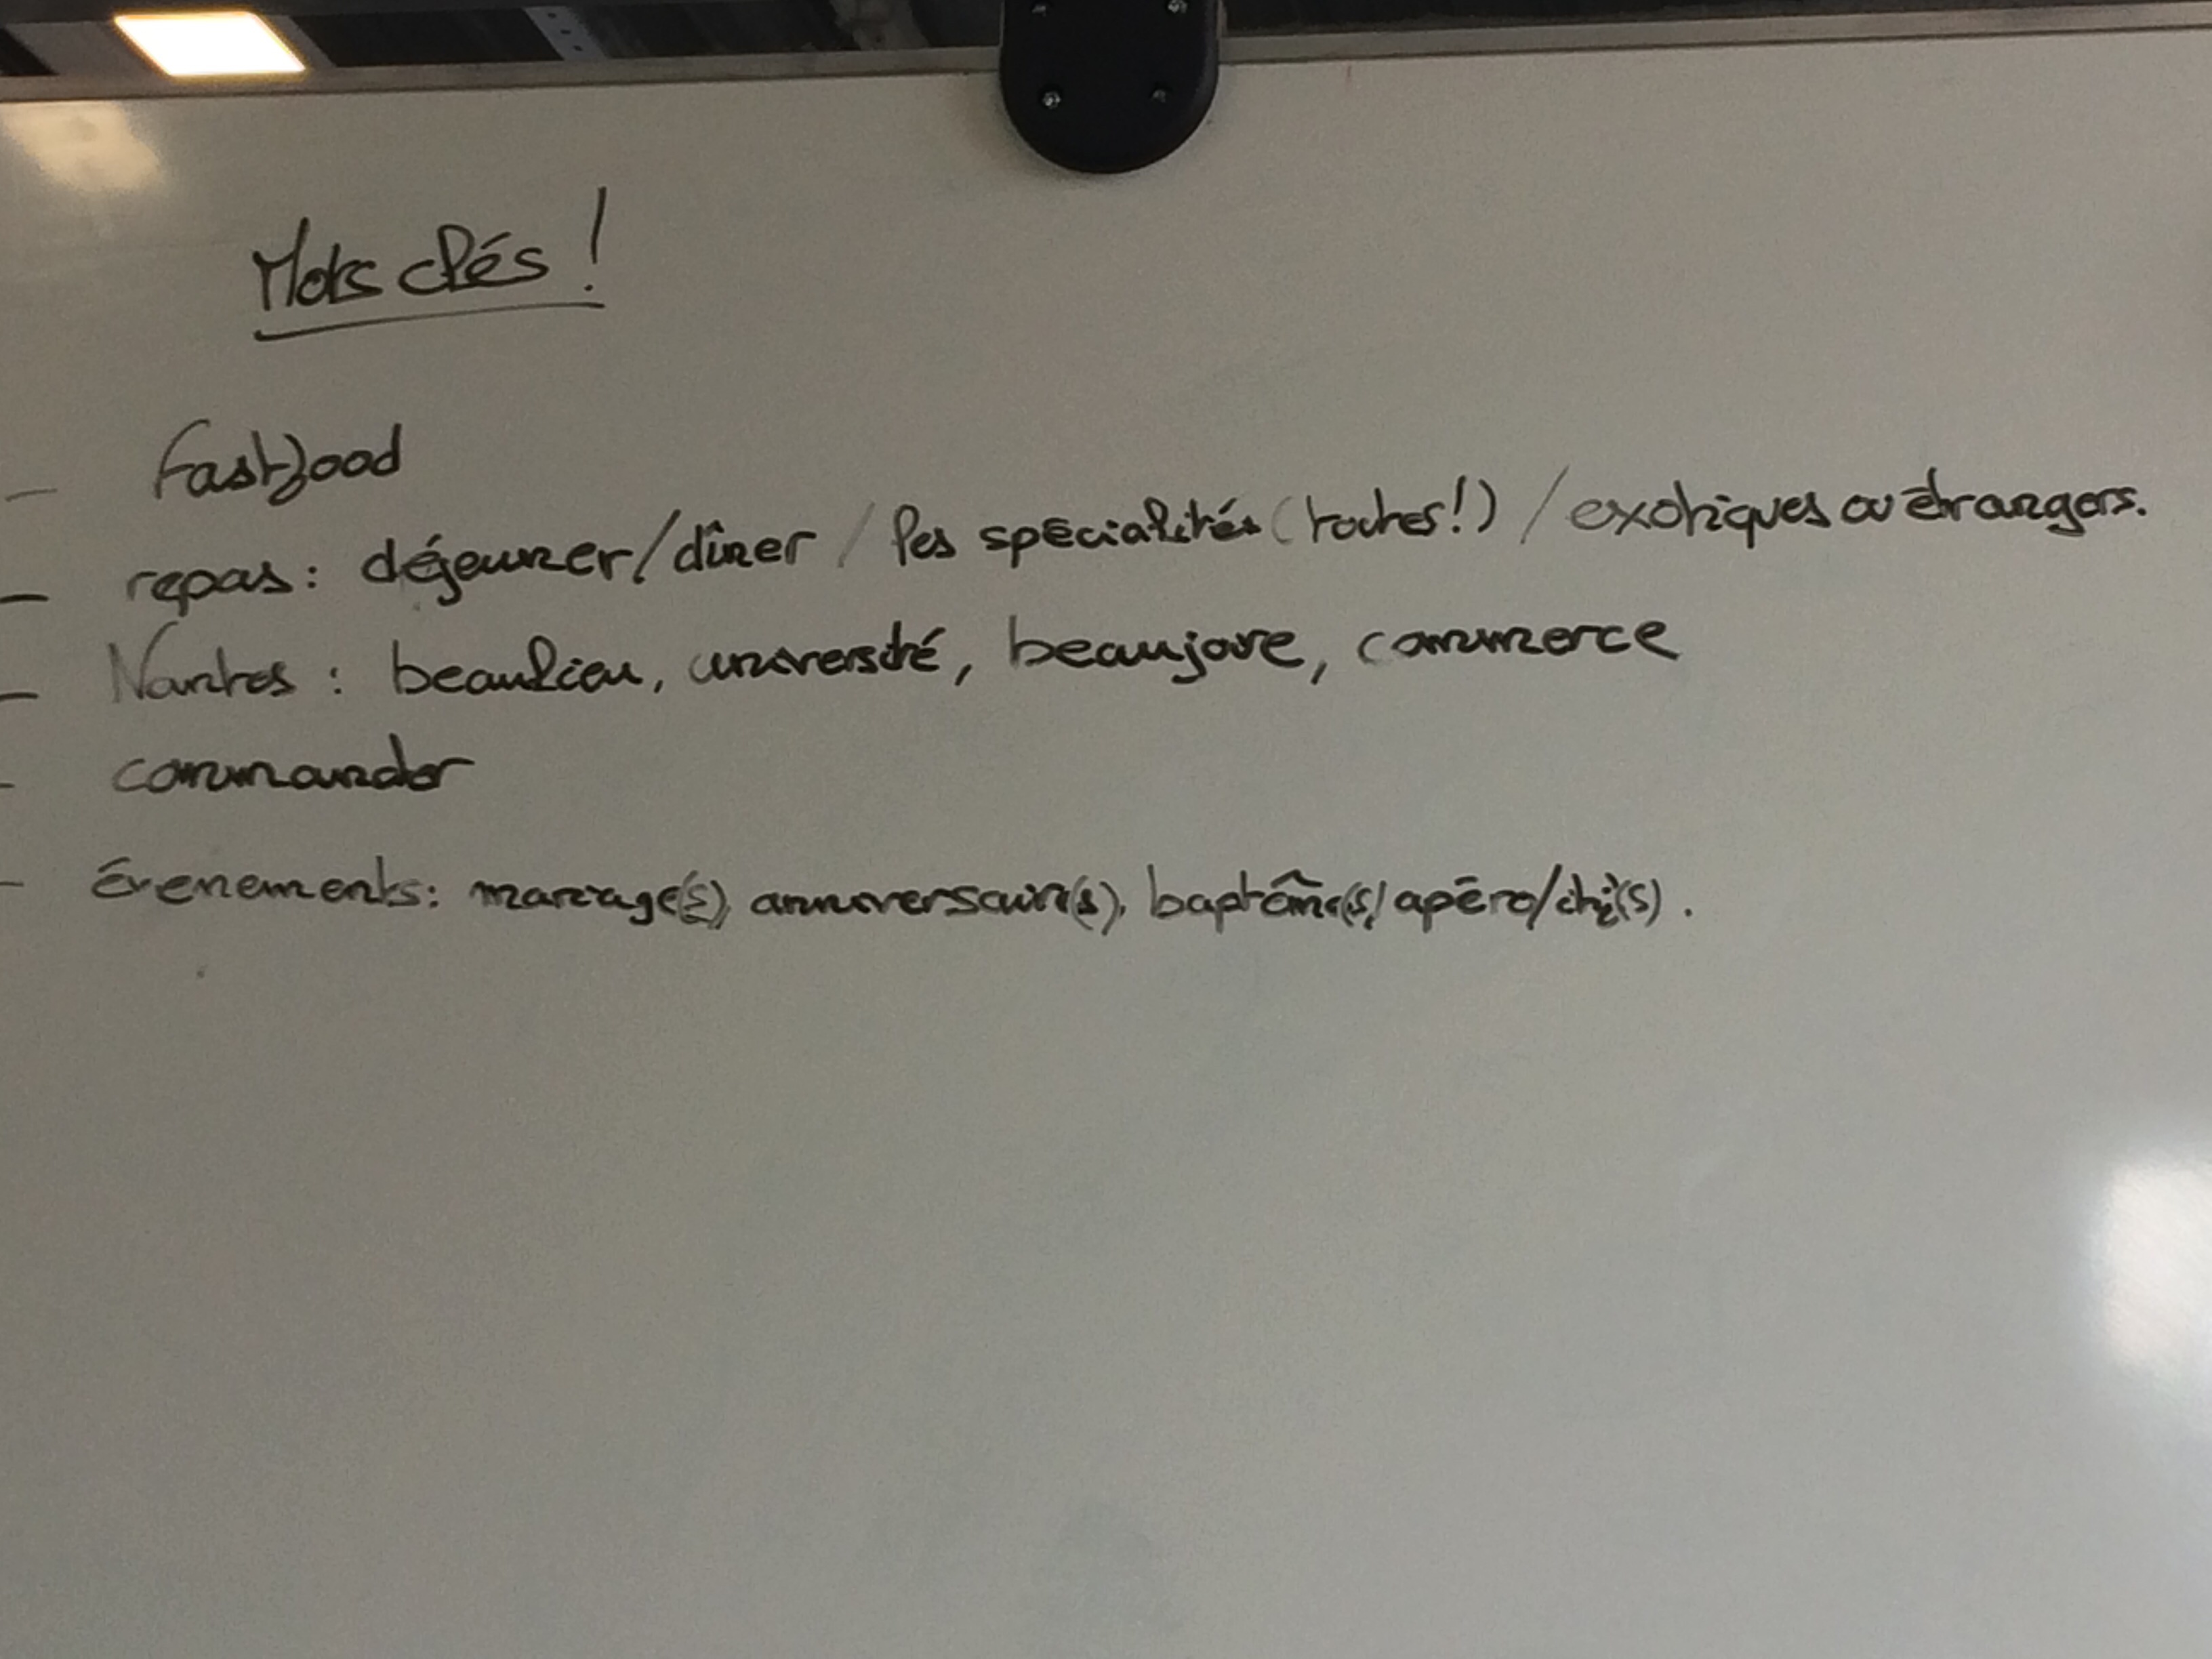 Mots clés !
- Fastfood
- repas : déjeuner/dîner / les spécialités (toutes!) / exotiques ou étrangers.
- Nantes : beaulieu, université, beaujoire, commerce
- commander
- Événements : mariage(s), anniversaire(s), baptême(s), apéro/